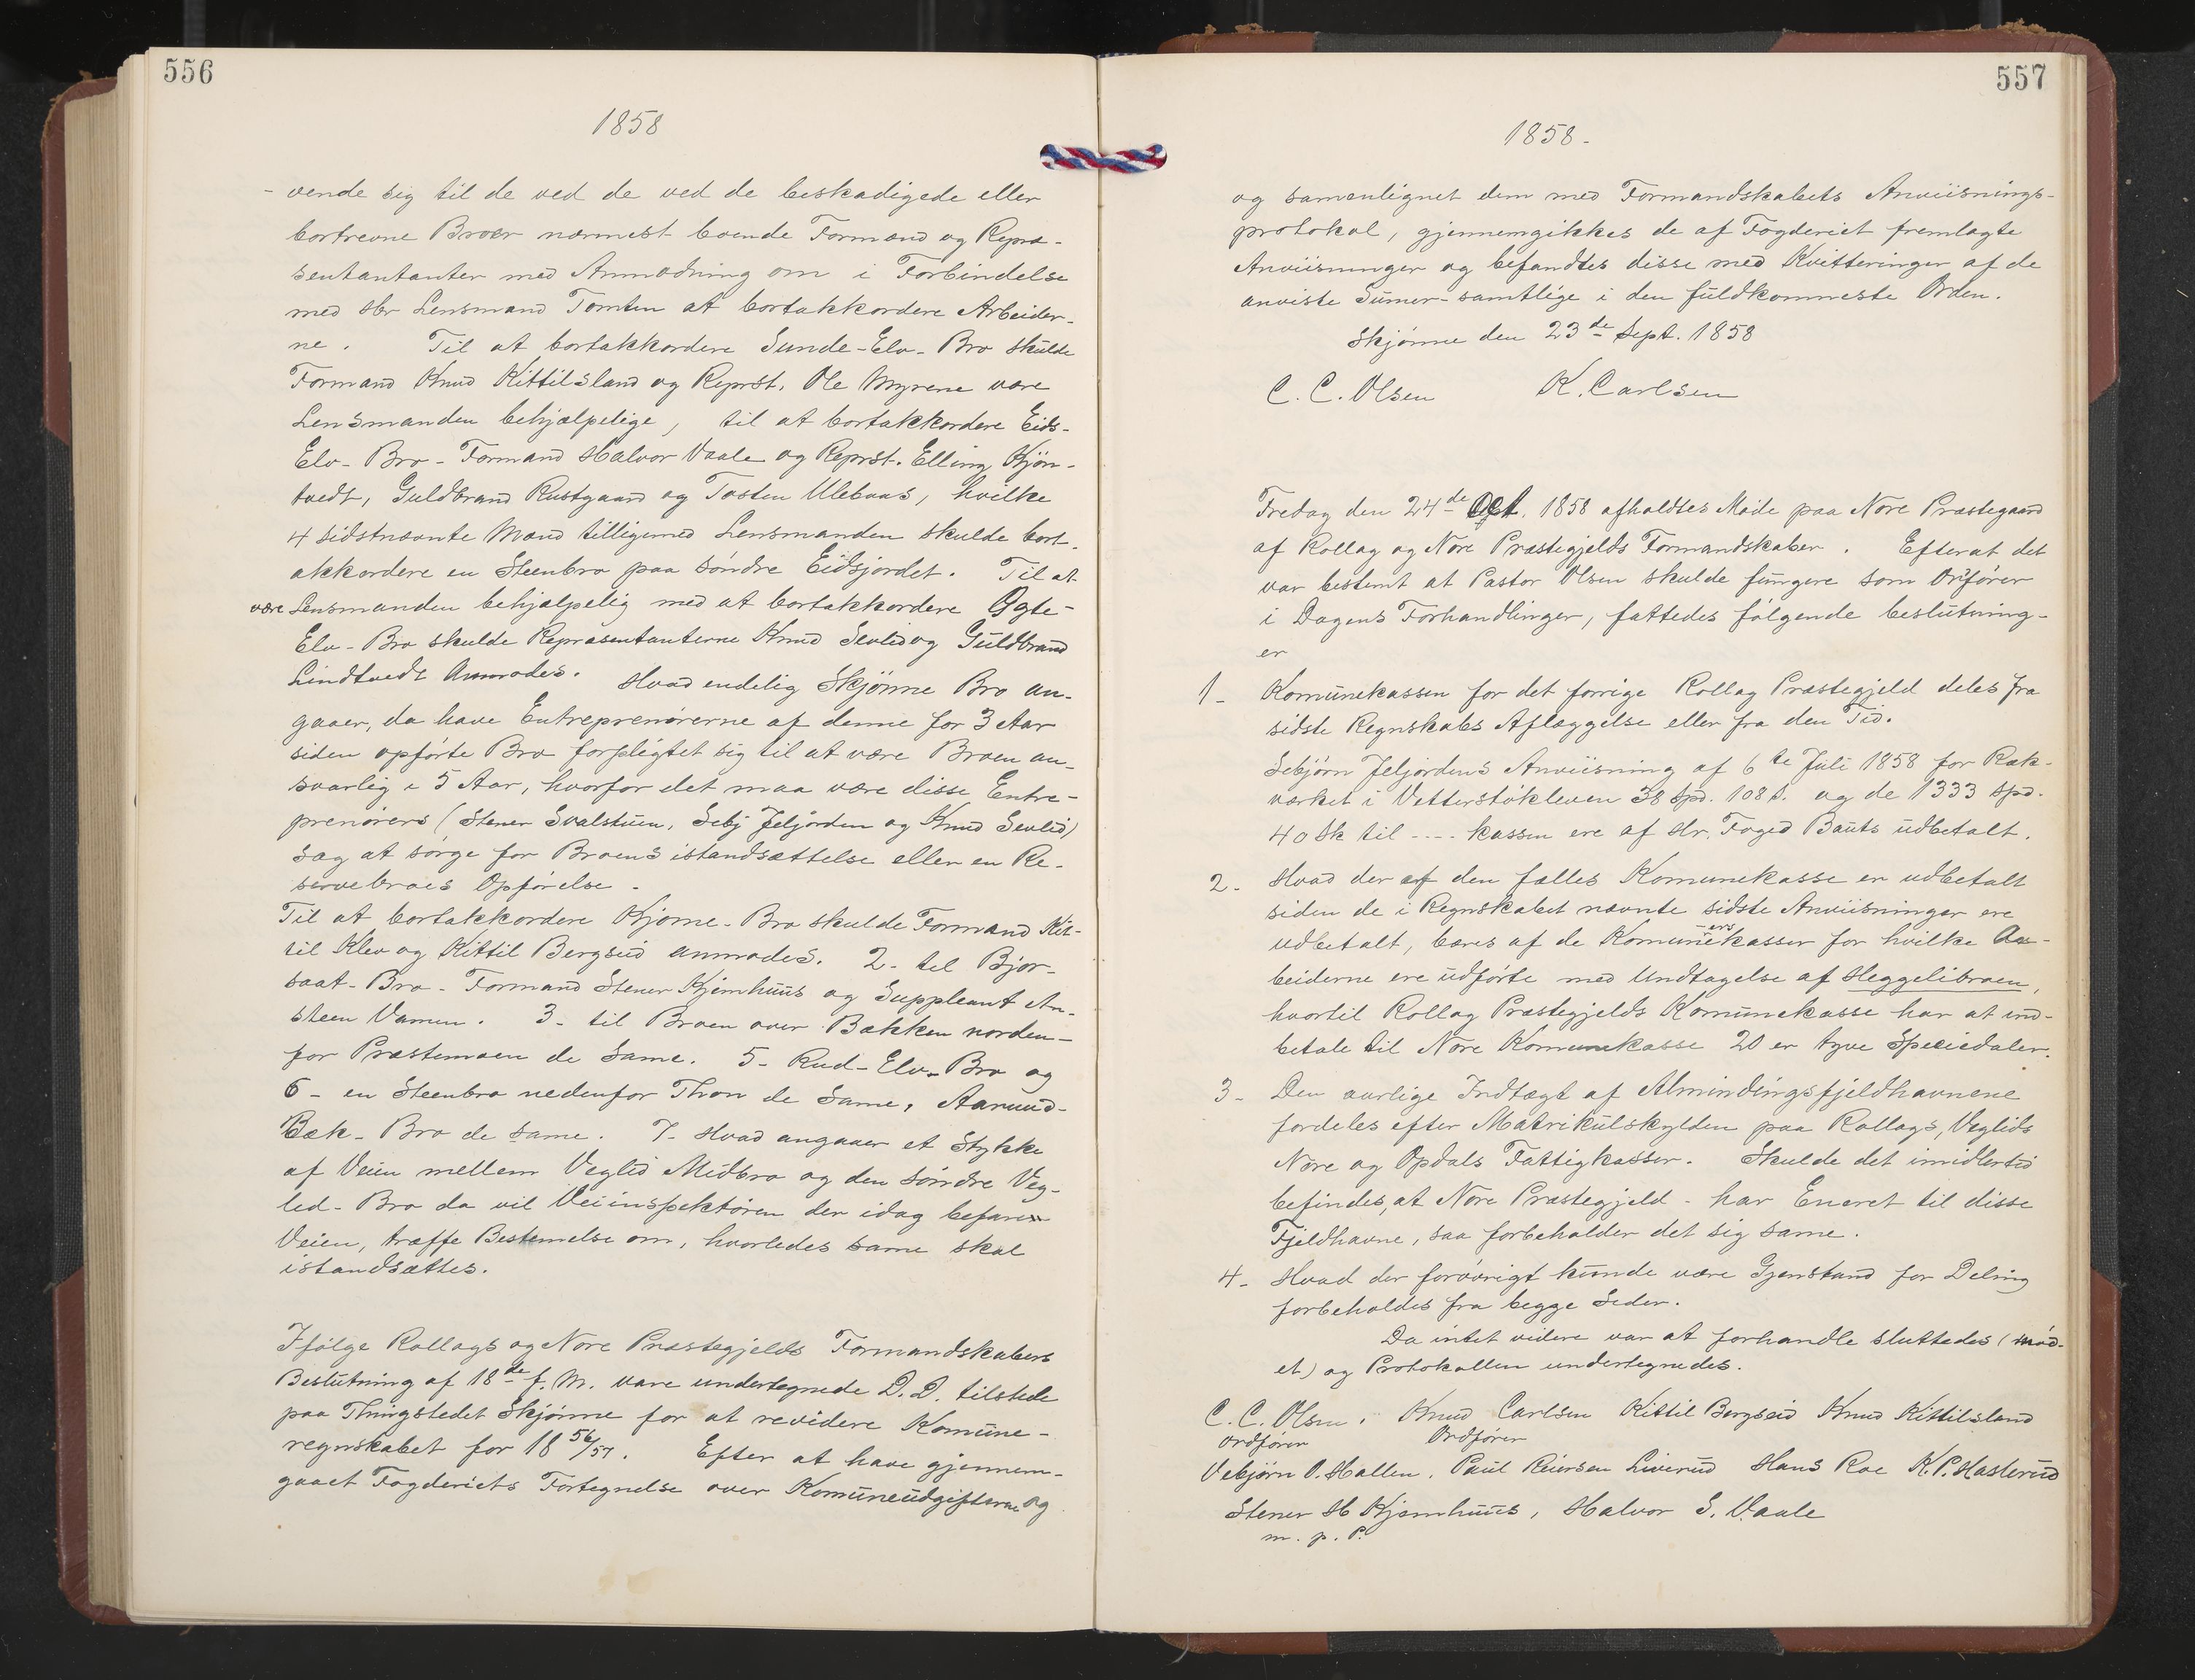 556
1858
- vende sig til de ved de ved de beskadigede eller
bortrevne Broer nærmest boende Formænd og Repræ-
sentantanter med Anmodning om i Forbindelse
med Hr Lensmand Tomten at bortakkordere Arbeider-
ne. Til at bortakkordere Sunde-Elv-Bro skulde
Formand Knud Kittilsland og Reprst. Ole Myrene være
Lensmanden behjælpelige, til at bortakkordere Eids-
Elv-Bro - Formand Halvor Vaale og Reprst. Elling Kjøn-
tvedt, Guldbrand Rustgaard og Tosten Ulebaas, hvilke
4 sidstnævnte Mænd tilligemed Lensmanden skulde bort-
akkordere en Steenbro paa søndre Eidsjordet. Til at
være Lensmanden behjælpelig med at bortakkordere Ygte-
Elv-Bro skulde Repræsentanterne Knud Sevlid og Guldbrand
Lindtvedt anmodes. Hvad endelig Skjønne Bro an-
gaaer, da have Entreprenørerne af denne for 3 Aar
siden opførte Bro forpligtet sig til at være Broen an-
svarlig i 5 Aar, hvorfor det maa være disse Entre-
prenørers (Stener Svalstuen, Sebj Jeljorden og Knud Sevlid)
sag at sørge for Broens istandsættelse eller en Re-
servebroes Opførelse.
Til at bortakkordere Kjome-Bro skulde Formand Kit-
til Klev og Kittil Bergseid anmodes. 2- til Bjor-
saat-Bro - Formand Stener Kjemhuus og Suppleant An-
steen Vamen. 3- til Broen over Bækken norden-
for Præstemoen de Same. 5- Rud-Elv-Bro og
6- en Steenbro nedenfor Thon de Same, Aarund-
Bæk-Bro de same. 7- Hvad angaaer et Stykke
af Veien mellem Veglid Midbro og den søndre Veg-
lid-Bro da vil Veiinspektøren der idag befarer
Veien, træffe Bestemelse om, hvorledes same skal
istandsættes.
Ifølge Rollags og Nore Præstegjelds Formandskabers
Beslutning af 18de f. M. vare undertegnede D.D. tilstede
paa Thingstedet Skjønne for at revidere Komune-
regnskabet for 18 56/57. Efter at have gjennem-
gaaet Fogderiets Fortegnelse over Komuneudgifterne og
557
1858-
og samenlignet dem med Formandskabets Anviisnings-
protokol, gjennemgikkes de af Fogderiet fremlagte
Anviisninger og befandtes disse med Kvitteringer af de
anviste Sumer - samtlige i den fuldkommeste Orden.
Skjønne den 23de Sept. 1858
C. C. Olsen K. Carlsen
Fredag den 24de 1858 afholdtes Møde paa Nore Præstegaard
af Rollag og Nore Præstegjelds Formandskaber. Efterat det
var bestemt at Pastor Olsen skulde fungere som Ordfører
i Dagens Forhandlinger, fattedes følgende beslutning-
er
1- Komunekassen for det forrige Rollag Præstegjeld deles fra
sidste Regnskabs Aflæggelse eller fra den Tid.
Sebjørn Jeljordens Anviisning af 6te Juli 1858 for Ræk-
værket i Vetterstøkleven 38 Spd. 108 s. og de 1333 Spd.
40 Sk til ---- kassen ere af Hr. Foged Bauts udbetalt.
2- Hvad der af den fælles Komunekasse er udbetalt
siden de i Regnskabet nævnte sidste Anviisninger ere
udbetalt, bæres af de Komunekasser for hvilke Ar-
-ers
beiderne ere udførte med Undtagelse af Heggelibroen,
hvortil Rollag Præstegjelds Komunekasse har at ind-
betale til Nore Komunekasse 20 er tyve Speciedaler.
3- Den aarlige Indtægt af Almindingsfjeldhavnene
fordeles efter Matrikulskylden paa Rollags, Veglids
Nore og Opdals Fattigkasser. Skulde det imidlertid
befindes, at Nore Præstegjeld - har Eneret til disse
Fjeldhavne, saa forbeholder det sig same.
4- Hvad der forøvrigt kunde være Gjenstand for Deling
forbeholdes fra begge Seder.
Da intet videre var at forhandle sluttedes (mød-
et) og Protokollen undertegnedes.
C. C. Olsen, Knud Carlsen Kittil Bergseid Knud Kittilsland
ordfører Ordfører
Vebjørn O. Hallen, Paul Reiersen Liverud Hans Roe K. P. Hasterud
Stener H Kjemhuus, Halvor S. Vaale
m. p. P.